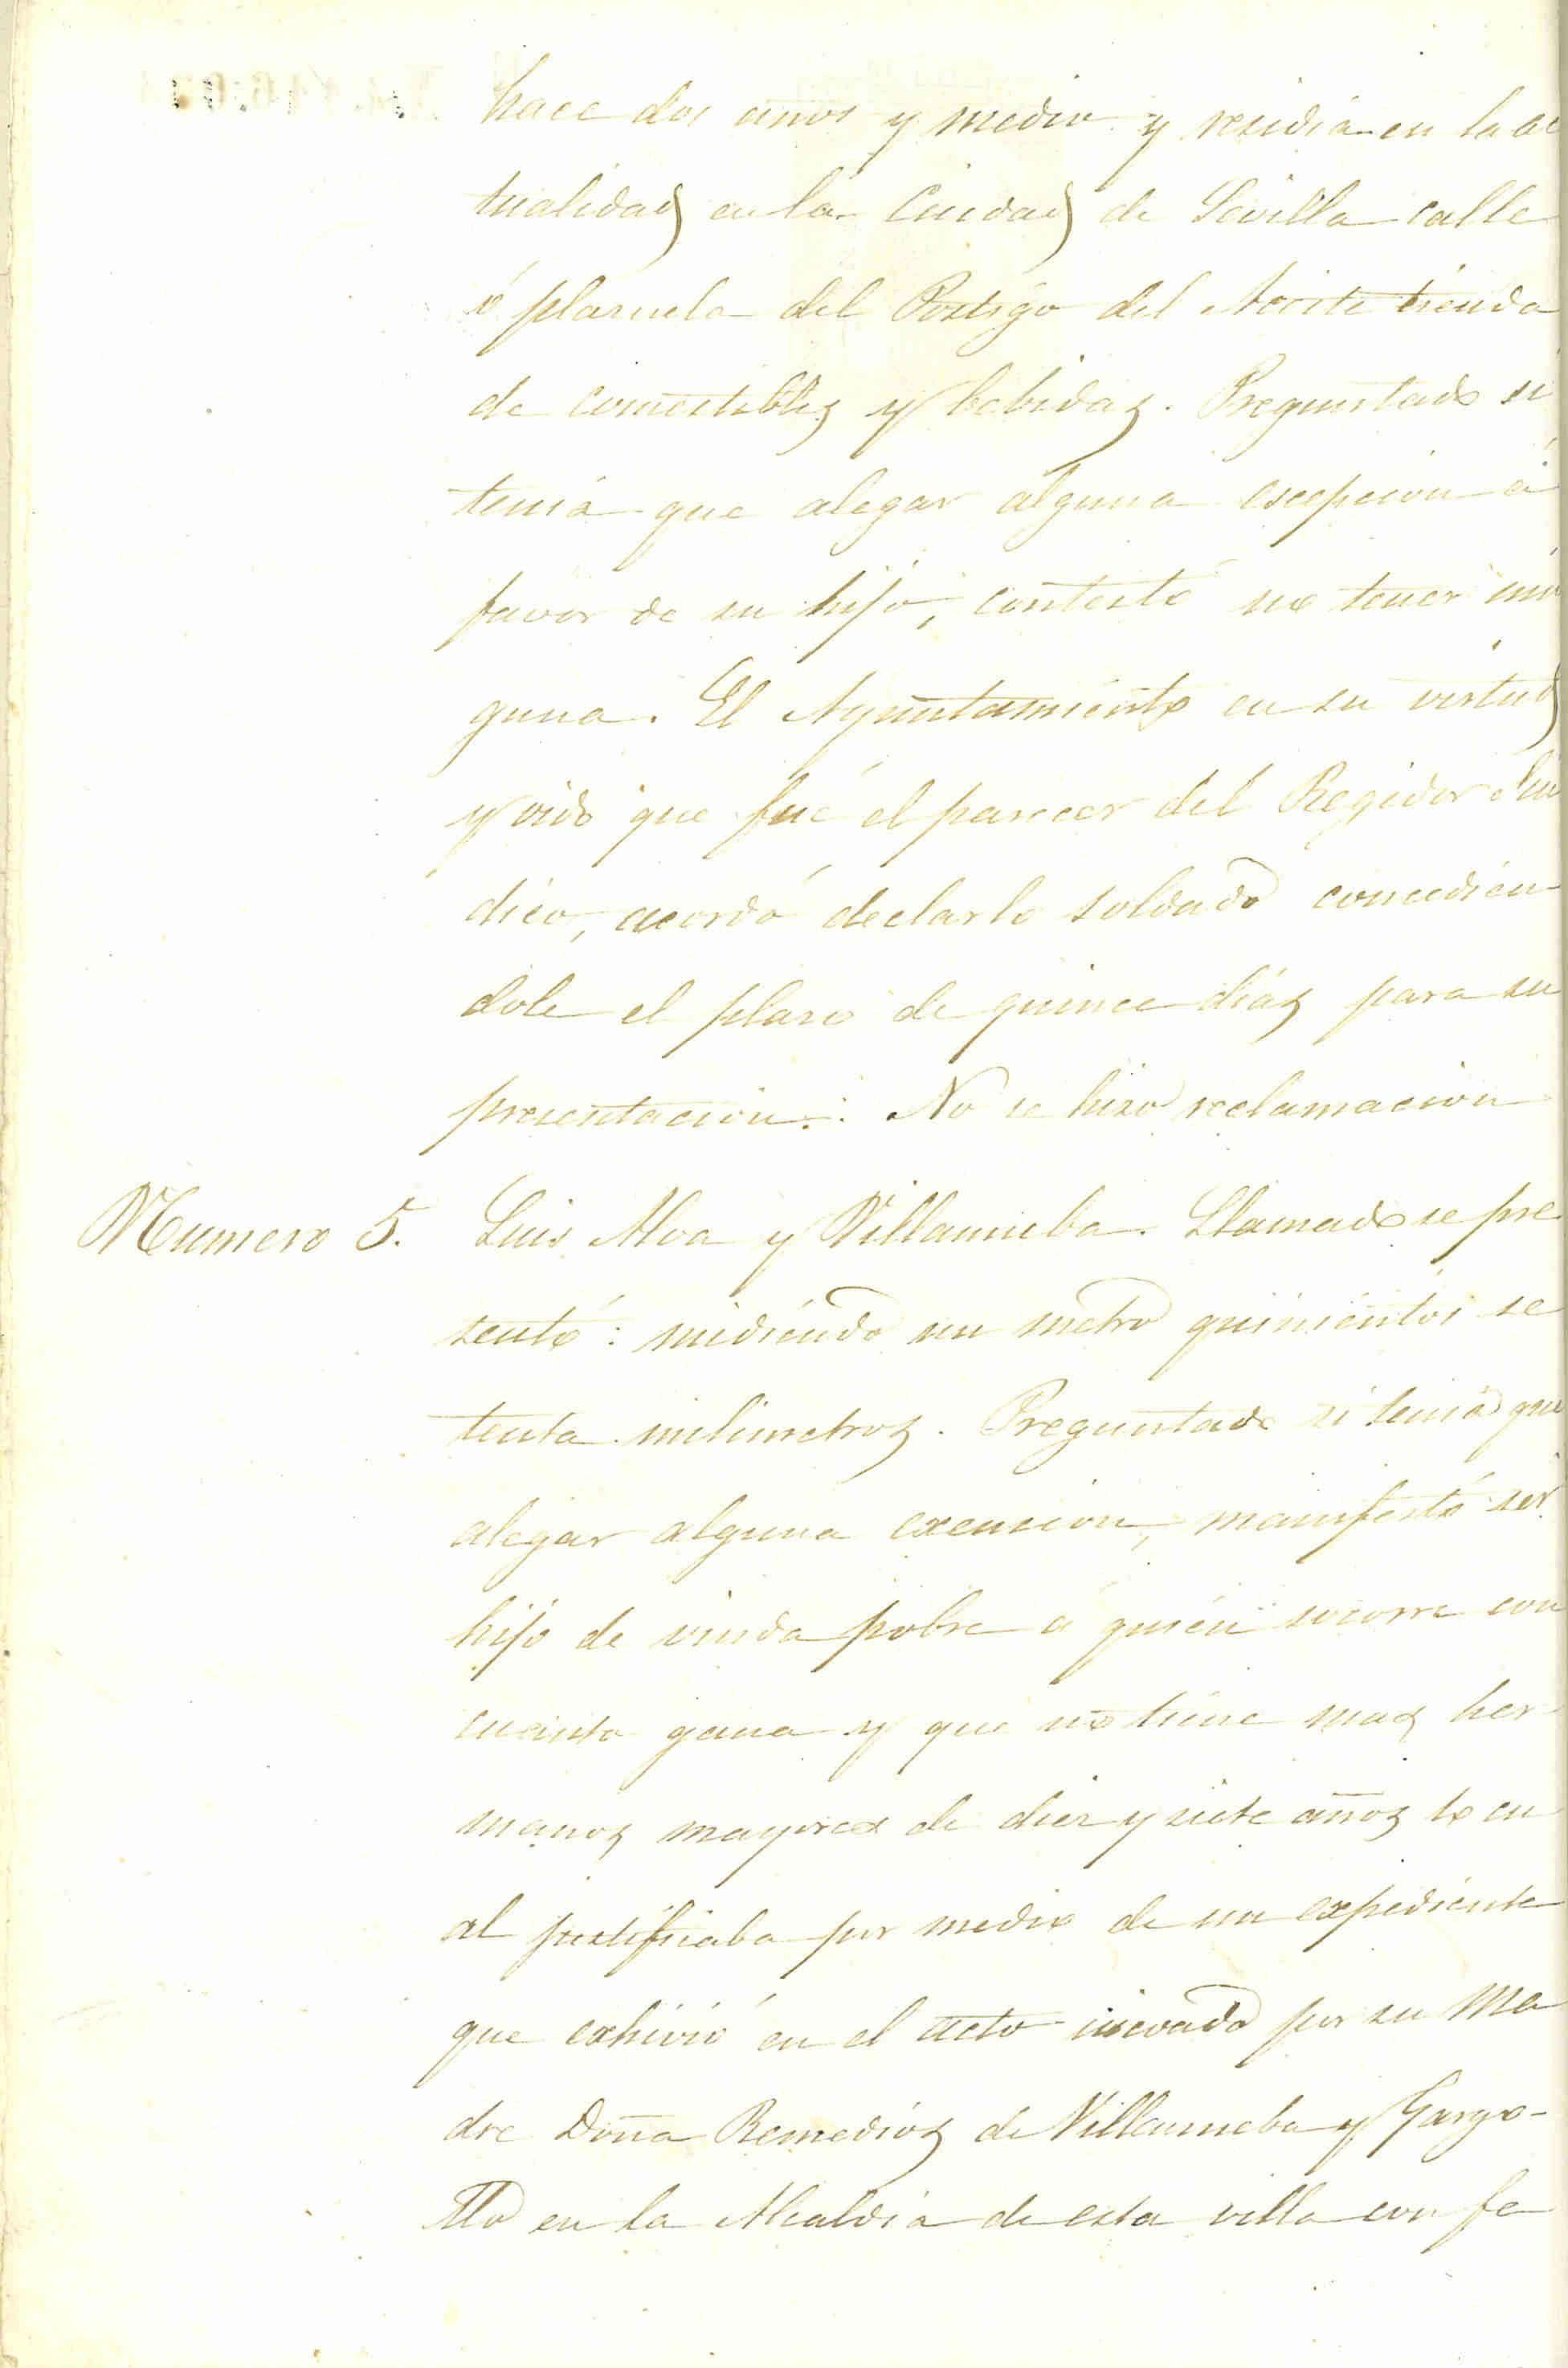 hace dos años y medio y residia en la ac
tualidad en la Ciudad de Sevilla calle
ó plazuela del Postigo del Aceite tienda
de comestibles y bebidas. Preguntado si
tenia que alegar alguna escepcion á
favor de su hijo, contestó no tener nin
guna. El Ayuntamiento en su virtud
y oido que fué el parecer del Regidor Sin
dico, acordó declarlo soldado concedien
dole el plazo de quince dias para su
presentacion. No se hizo reclamacion
Numero 5. Luis Alva y Villanueba. Llamado se pre
sentó: midiendo un metro quinientos se
tenta milimetros. Preguntado si tenia que
alegar alguna exencion, manifestó ser
hijo de viuda pobre á quien socorre con
cuanto gana y que no tiene mas her-
manos mayores de diez y siete años lo cu
al justificaba por medio de un expediente
que exhivió en el acto incoado por su Ma
dre Doña Remedios de Villanueba y Gargo-
llo en la Alcaldia de esta villa con fe